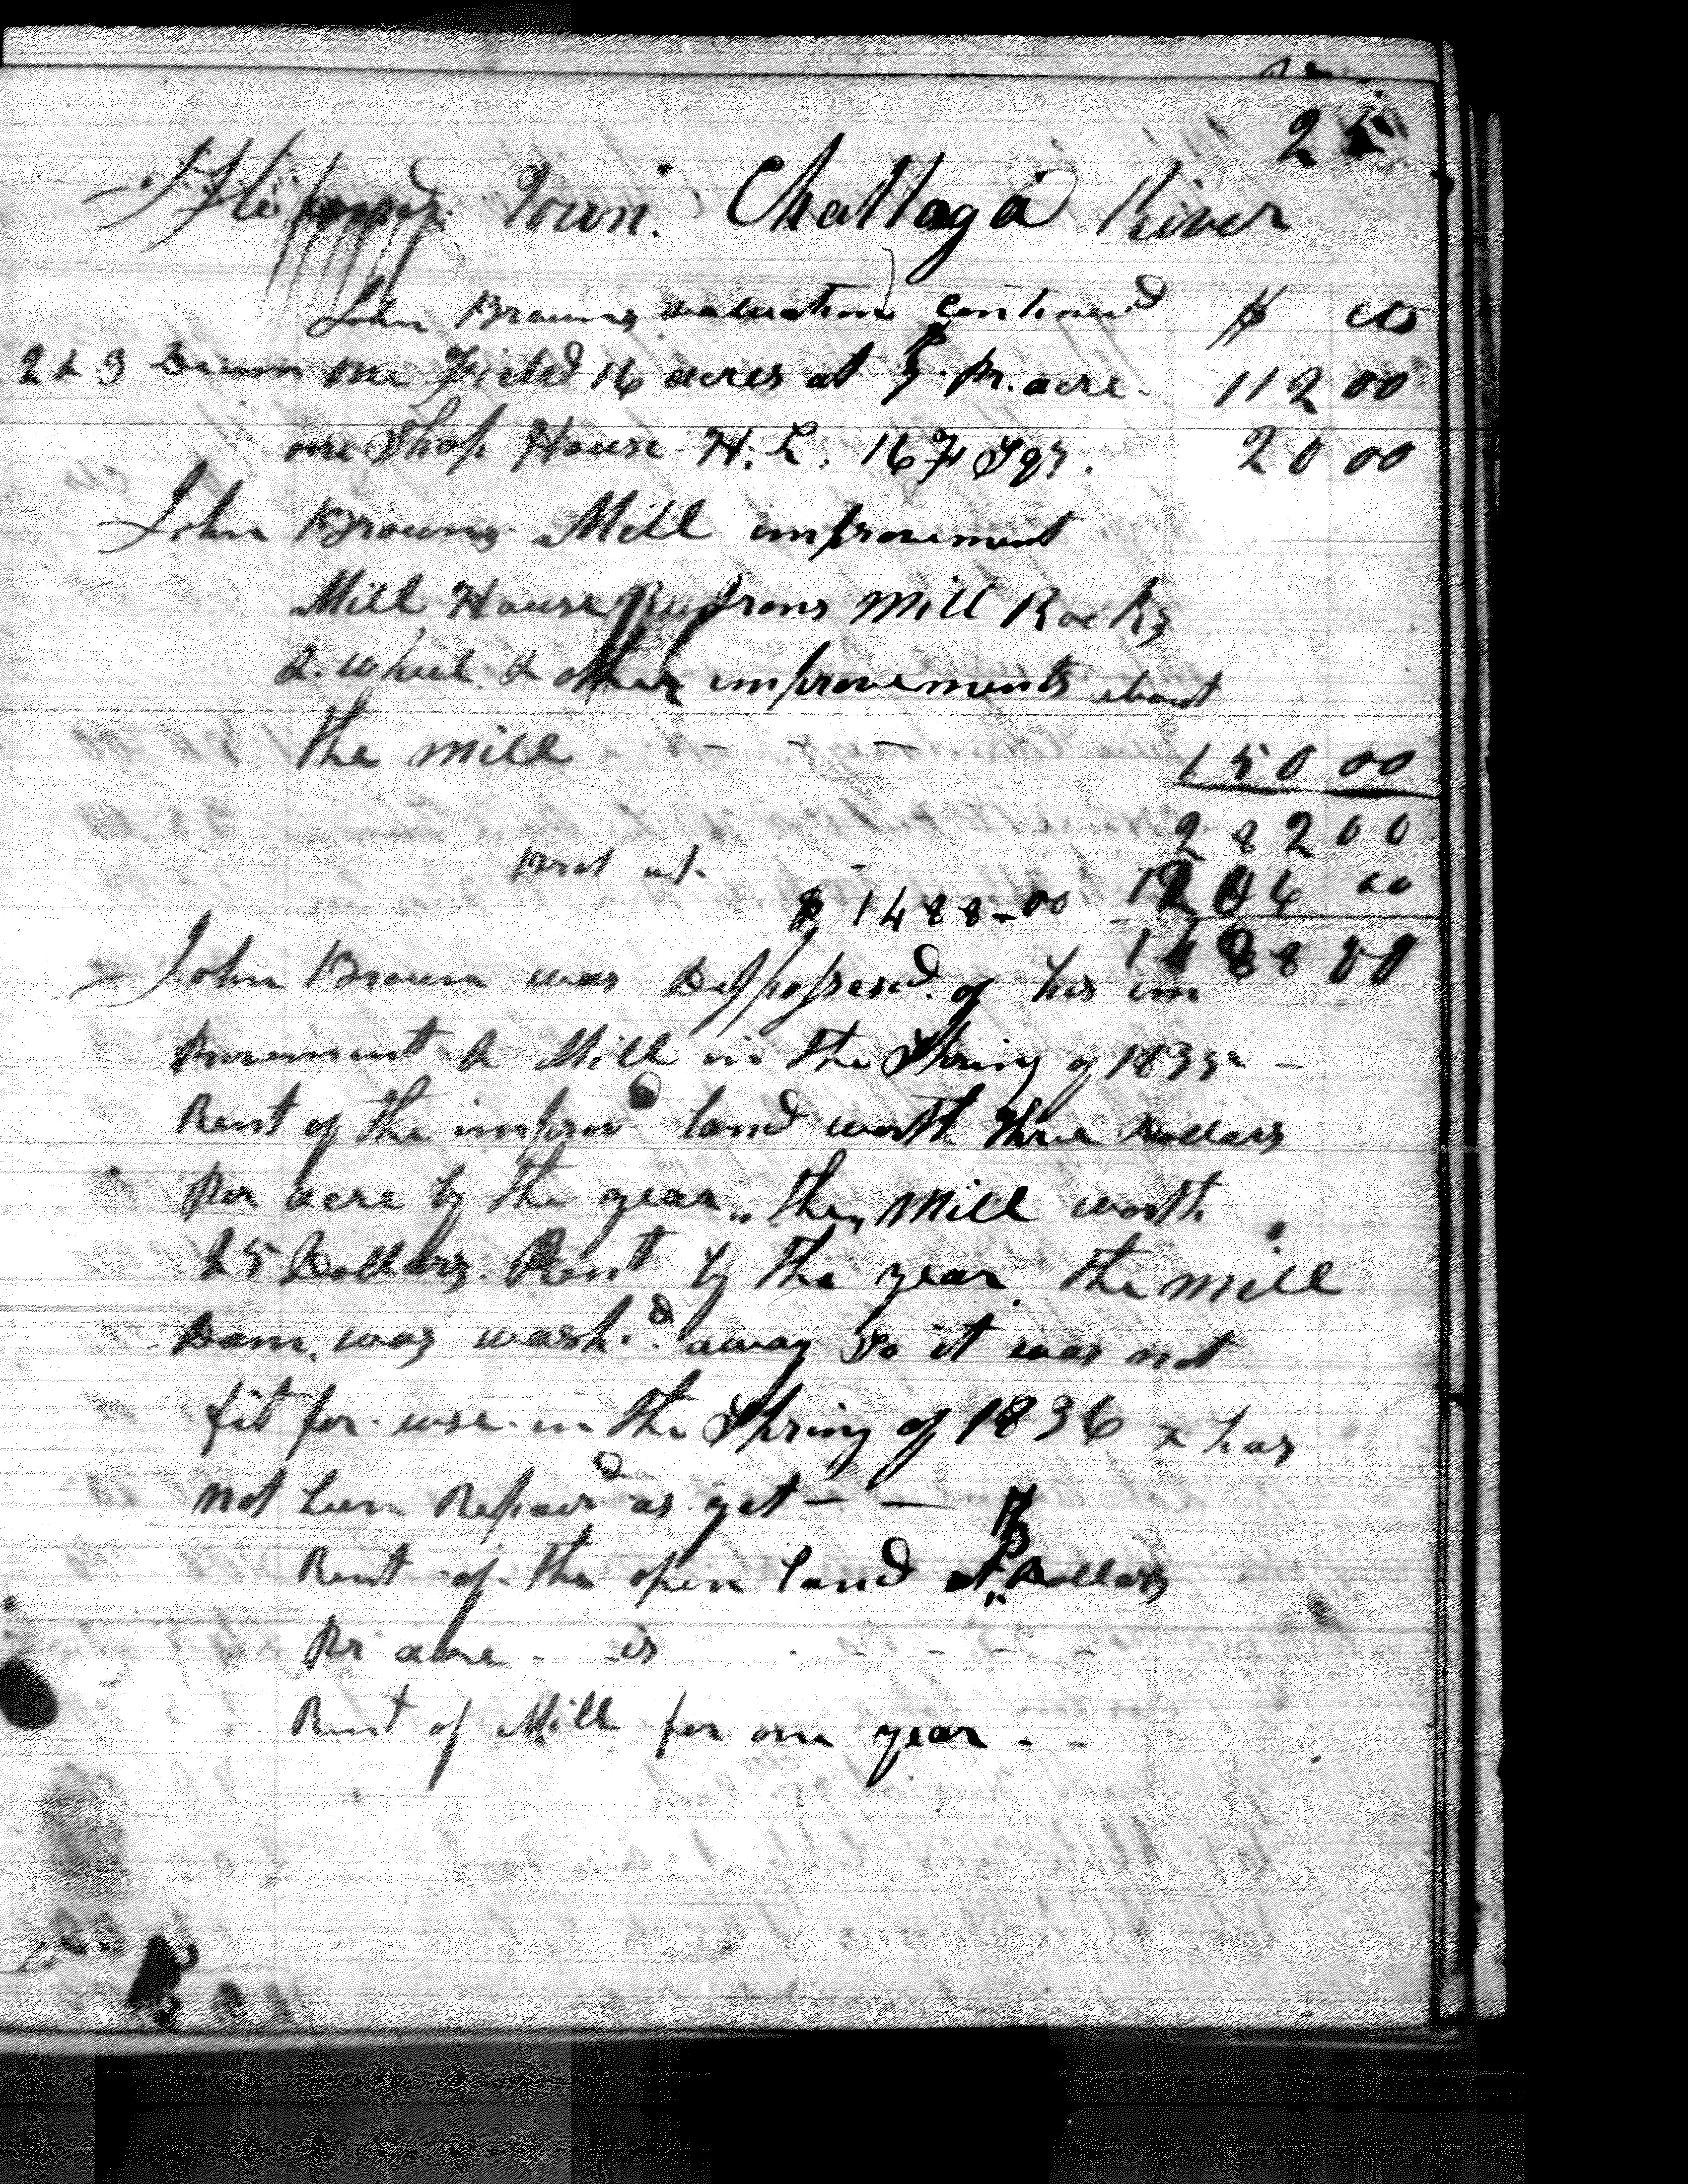 25
Town. Chattoga River
John Browns valuation continued $ cts
2 & 3 one Field 16 acres at $7. pr. acre. 112 00
one Shop House. H. L. 16 F Sqr. 20 00
John Browns Mill improvement
Mill House Mill Rocks
& wheel & other improvements about
the mill - - - 150 00
282 00
Brot up. - 1206 00
$ 1488-00 1488 00
John Brown was Dispossesd. of his im
provement. & Mill in the Spring of 1835 -
Rent of the improvd land worth three Dollars
per acre by the year, the, Mill worth
25 Dollars. Rent by the year. the mill
Dam, was wash.d away So it was not
fit for use in the Spring of 1836 & has
not been Repaird as yet - -
Rent of the open land at $3 Dollars
Pr acre. is . - - - -
Rent of Mill for one year . -